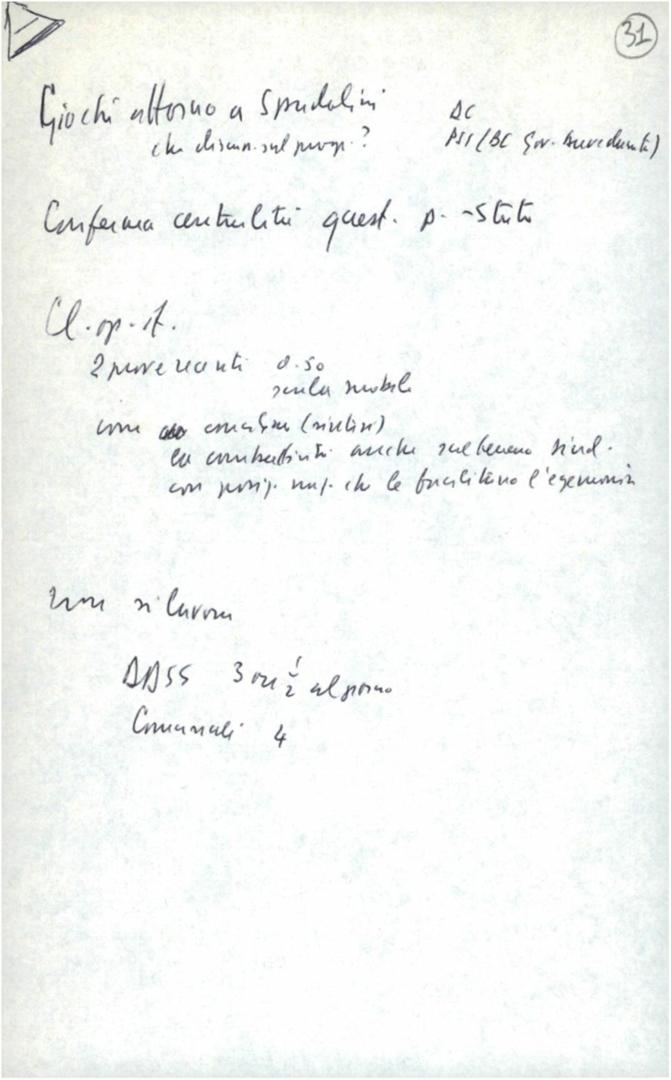 31
Giochi attorno a Spadolini DC
che discus. sul progr.? PSI (BC Gov.
Conferma centralità quest. p. - Stato
Cl. op. sf.
2 prove recenti 0.50
scala mobile
come
la combattività anche sul terreno sind.
con posiz. che le facilitano l'egemonia
non si lavora
AASS 3 ore 1/2 al giorno
Comunali 4